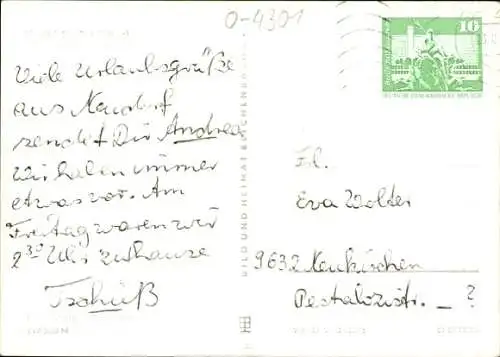 0-4301
Viele Urlaubsgrüße
aus Neudorf
sendet Dir Andrea
Wir haben immer
etwas vor. Am
Freitag waren wir
2³⁰ Uhr zuhause
Tschüß
BILD UND HEIMAT REICHENBACH
10
Frl.
Eva Wolter
9632 Neukirchen
Pestalozzistr. _ ?